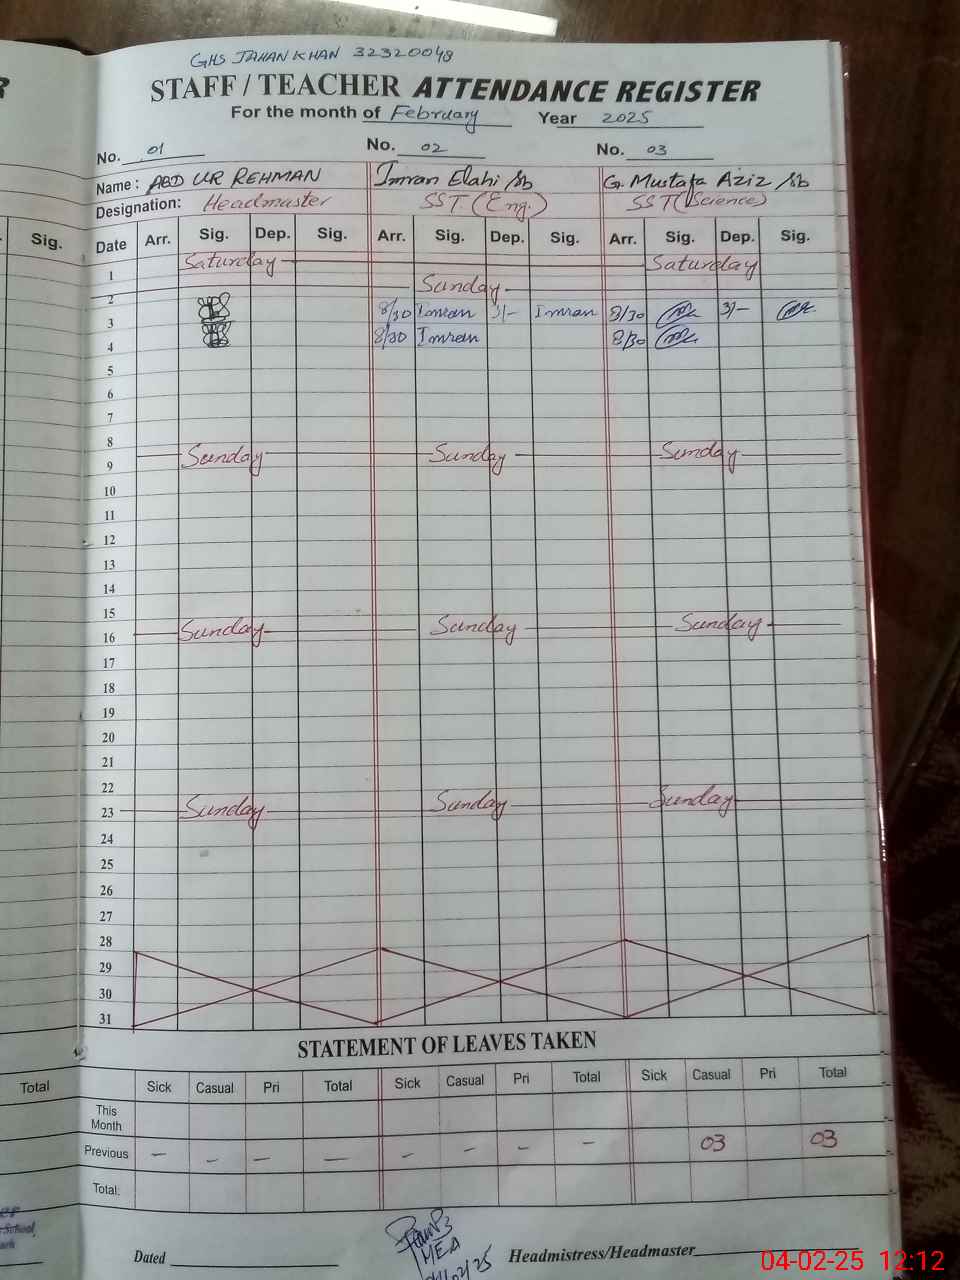 GHS JAHAN KHAN 32320048
R
STAFF / TEACHER ATTENDANCE REGISTER
For the month of February Year 2025
No. 01 No. 02 No. 03
Name : ABD UR REHMAN Imran Elahi Sb G. Mustafa Aziz Sb
Designation: Headmaster SST (Eng.) SST (Science)
Sig. Date Arr. Sig. Dep. Sig. Arr. Sig. Dep. Sig. Arr. Sig. Dep. Sig.
1 Saturday Saturday
2 Sunday
3 8/30 Imran 3/- Imran 8/30 3/-
4 8/30 Imran 8/30
5
6
7
8
9 Sunday Sunday Sunday
10
11
12
13
14
15
16 Sunday Sunday Sunday
17
18
19
20
21
22
23 Sunday Sunday Sunday
24
25
26
27
28
29
30
31
STATEMENT OF LEAVES TAKEN
Total Sick Casual Pri Total Sick Casual Pri Total Sick Casual Pri Total
This Month
Previous – – – – – – – – 03 03
Total:
School,
MEA
Dated Headmistress/Headmaster
04-02-25 12:12